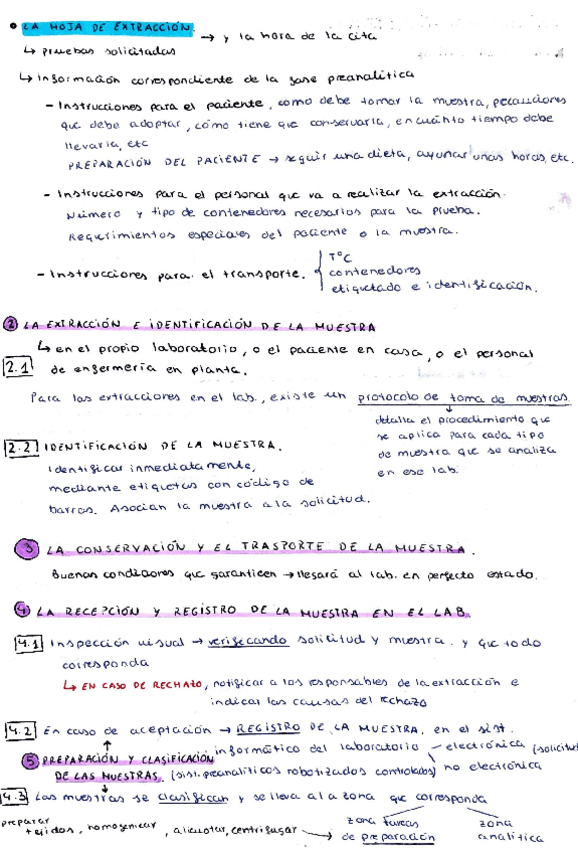 • LA HOJA DE EXTRACCIÓN. → y la hora de la cita
↳ pruebas solicitadas
↳ Información correspondiente de la fase preanalítica
- Instrucciones para el paciente, como debe tomar la muestra, precauciones
que debe adoptar, cómo tiene que conservarla, en cuánto tiempo debe
llevarla, etc
PREPARACIÓN DEL PACIENTE → seguir una dieta, ayunar unas horas, etc.
- Instrucciones para el personal que va a realizar la extracción.
Número y tipo de contenedores necesarios para la prueba.
Requerimientos especiales del paciente o la muestra.
- Instrucciones para el transporte. { TºC
contenedores
etiquetado e identificación.
2 LA EXTRACCIÓN E IDENTIFICACIÓN DE LA MUESTRA
↳ en el propio laboratorio, o el paciente en casa, o el personal
2.1 de enfermería en planta.
Para las extracciones en el lab., existe un protocolo de toma de muestras
detalla el procedimiento que
se aplica para cada tipo
de muestra que se analiza
en ese lab.
2.2 IDENTIFICACIÓN DE LA MUESTRA.
Identificar inmediatamente,
mediante etiquetas con código de
barras. Asocian la muestra a la solicitud.
3 LA CONSERVACIÓN Y EL TRASPORTE DE LA MUESTRA.
Buenas condiciones que garanticen → llegará al lab. en perfecto estado.
4 LA RECEPCIÓN Y REGISTRO DE LA MUESTRA EN EL LAB.
4.1 Inspección visual → verificando solicitud y muestra. y que todo
corresponda
↳ EN CASO DE RECHAZO, notificar a los responsables de la extracción e
indicar las causas del rechazo
4.2 En caso de aceptación → REGISTRO DE LA MUESTRA. en el sist.
informático del laboratorio - electrónica (solicitud
- no electrónica
5 PREPARACIÓN Y CLASIFICACIÓN
DE LAS MUESTRAS. (sist. preanalíticos robotizados controlados)
4.3 Las muestras se clasifican y se lleva a la zona que corresponda
preparar
tejidos, homogeneizar, alicuotar, centrifugar → zona tareas
de preparación
zona
analítica